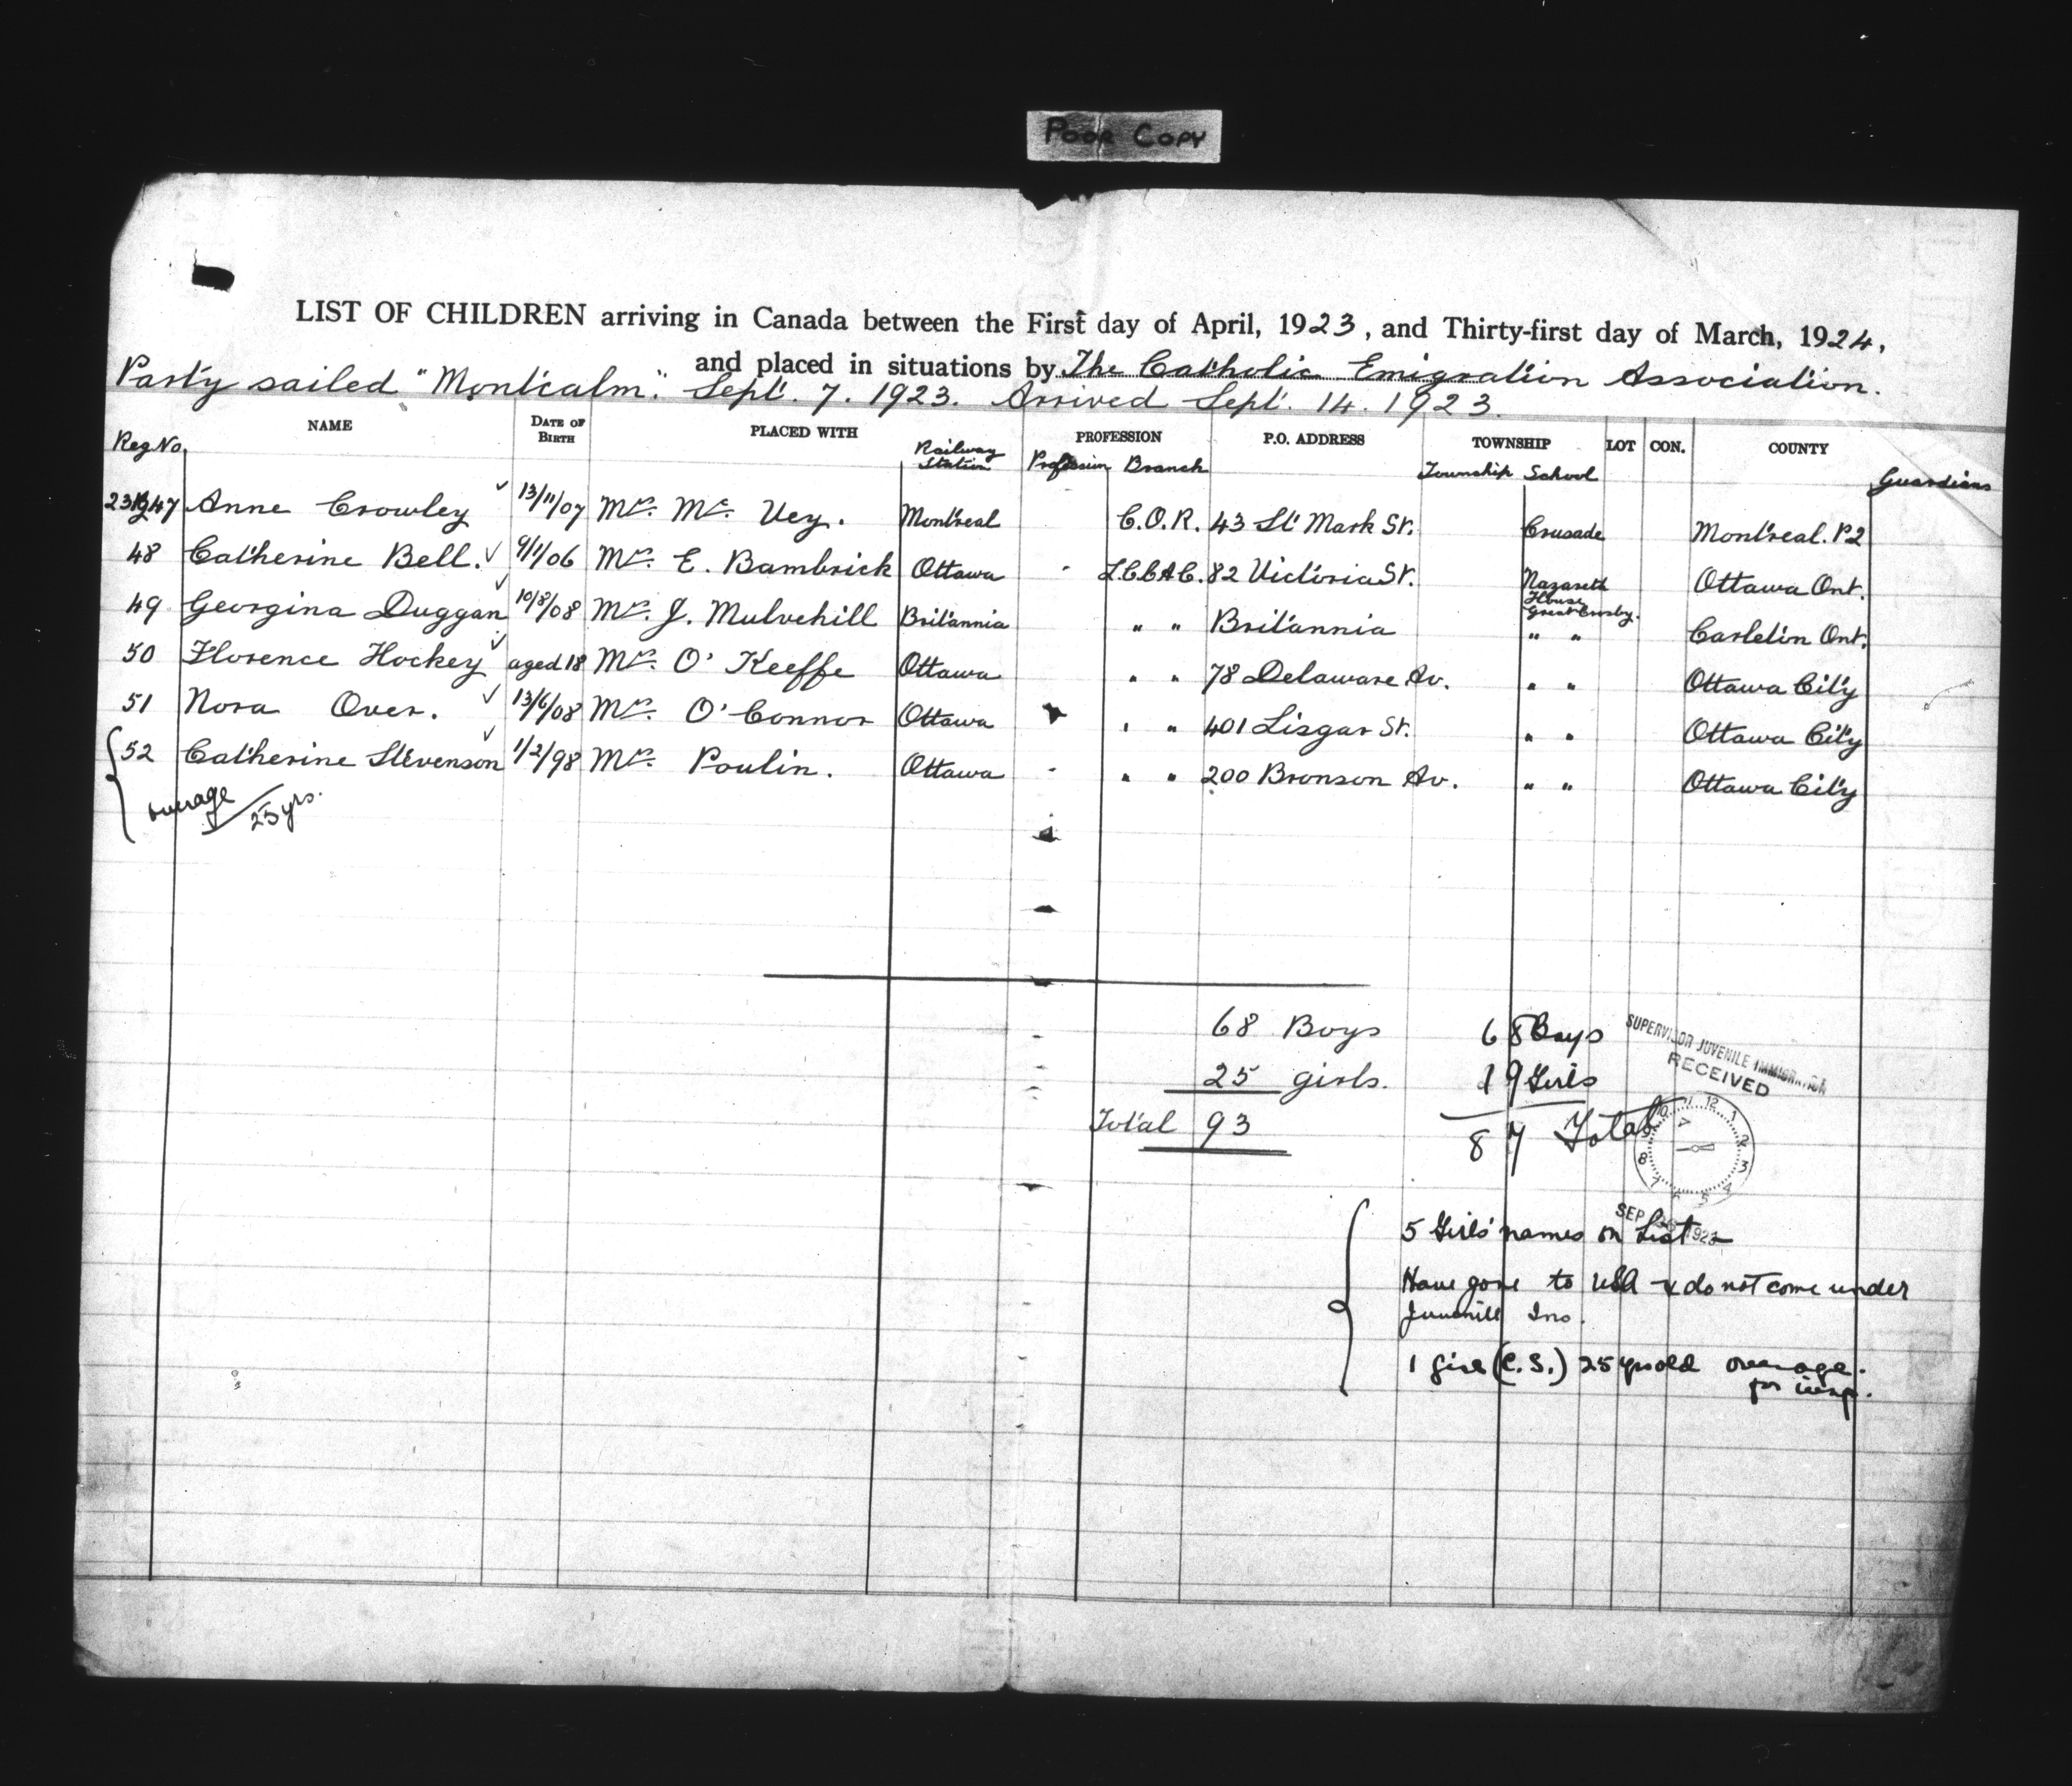 POOR COPY
LIST OF CHILDREN arriving in Canada between the First day of April, 1923, and Thirty-first day of March, 1924,
and placed in situations by The Catholic Emigration Association.
Party sailed "Montcalm". Sept. 7. 1923. Arrived Sept. 14. 1923.
Reg No. NAME DATE OF BIRTH PLACED WITH Railway Station PROFESSION Profession Branch P.O. ADDRESS TOWNSHIP Township School LOT CON. COUNTY Guardians
47 Anne Crowley ✓ 13/11/07 Mrs. Mc. Vey. Montreal C.O.R. 43 St Mark St. Crusade Montreal. P2
48 Catherine Bell. ✓ 9/1/06 Mrs. E. Bambrick Ottawa L.C.C.A.C. 82 Victoria St. Nazareth House Great Crosby. Ottawa Ont.
49 Georgina Duggan ✓ 10/8/08 Mrs. J. Mulvehill Britannia " " Britannia " " Carleton Ont.
50 Florence Hockey ✓ aged 18 Mrs. O'Keeffe Ottawa " " 78 Delaware Av. " " Ottawa City
51 Nora Over. ✓ 13/6/08 Mrs. O'Connor Ottawa " " 401 Lisgar St. " " Ottawa City
52 Catherine Stevenson ✓ 1/2/98 Mrs. Poulin. Ottawa " " 200 Bronson Av. " " Ottawa City
overage / 25 yrs.
68 Boys 68 Boys
25 girls. 19 Girls
Total 93 87 Total
SUPERVISOR JUVENILE IMMIGRATION
RECEIVED
SEP 1923
5 Girls' names on List
Have gone to USA & do not come under
Juvenile Ins.
1 girl (C.S.) 25 yrs old overage.
for insp.